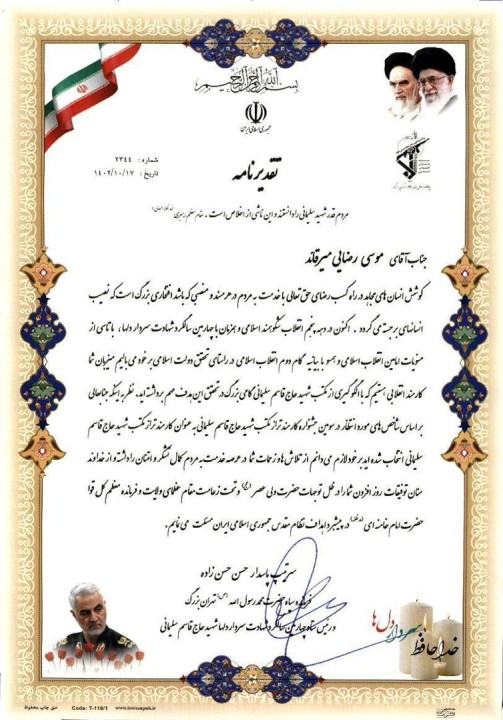 بسم الله الرحمن الرحیم
جمهوری اسلامی ایران
شماره : ۲۳۴۴
تاریخ : ۱۴۰۲/۱۰/۱۷
تقدیرنامه
مردم قدر شهید سلیمانی را دانستند و این ناشی از اخلاص است . مقام معظم رهبری (مدظله العالی)
جناب آقای موسی رضایی میرقائد
کوشش انسان های مجاهد در راه کسب رضای حق تعالی با خدمت به مردم در هر سند و منصبی که باشد افتخاری بزرگ است که نصیب
انسانهای برجسته می گردد . اکنون در دهه پنجم انقلاب شکوهمند اسلامی و همزمان با چهارمین سالگرد شهادت سردار دلها، با تاسی از
منویات امامین انقلاب اسلامی و همسو با بیانیه گام دوم انقلاب اسلامی در راستای تحقق دولت اسلامی بر خود می بالیم میزبان شما
کارمند انقلابی هستیم که با الگوگیری از مکتب شهید حاج قاسم سلیمانی گامی بزرگ در تحقق این هدف مهم برداشته اید. نظر به اینکه جنابعالی
بر اساس شاخص های مورد انتظار در سومین جشنواره کارمند تراز مکتب شهید حاج قاسم سلیمانی به عنوان کارمند تراز مکتب شهید حاج قاسم
سلیمانی انتخاب شده اید بر خود لازم می دانم از تلاش ها و زحمات شما در عرصه خدمت به مردم کمال تشکر و امتنان را داشته و از خداوند
منان توفیقات روز افزون شما را در ظل توجهات حضرت ولی عصر (عج) و تحت زعامت مقام عظمای ولایت و فرمانده معظم کل قوا
حضرت امام خامنه ای (مدظله) در پیشبرد اهداف نظام مقدس جمهوری اسلامی ایران مسئلت می نمایم.
سرتیپ پاسدار حسن حسن زاده
فرمانده سپاه حضرت محمد رسول الله (ص) تهران بزرگ
و رئیس ستاد چهارمین سالگرد شهادت سردار دلها شهید حاج قاسم سلیمانی
خداحافظ سردار دل ها
حق چاپ محفوظ
Code: T-119/1